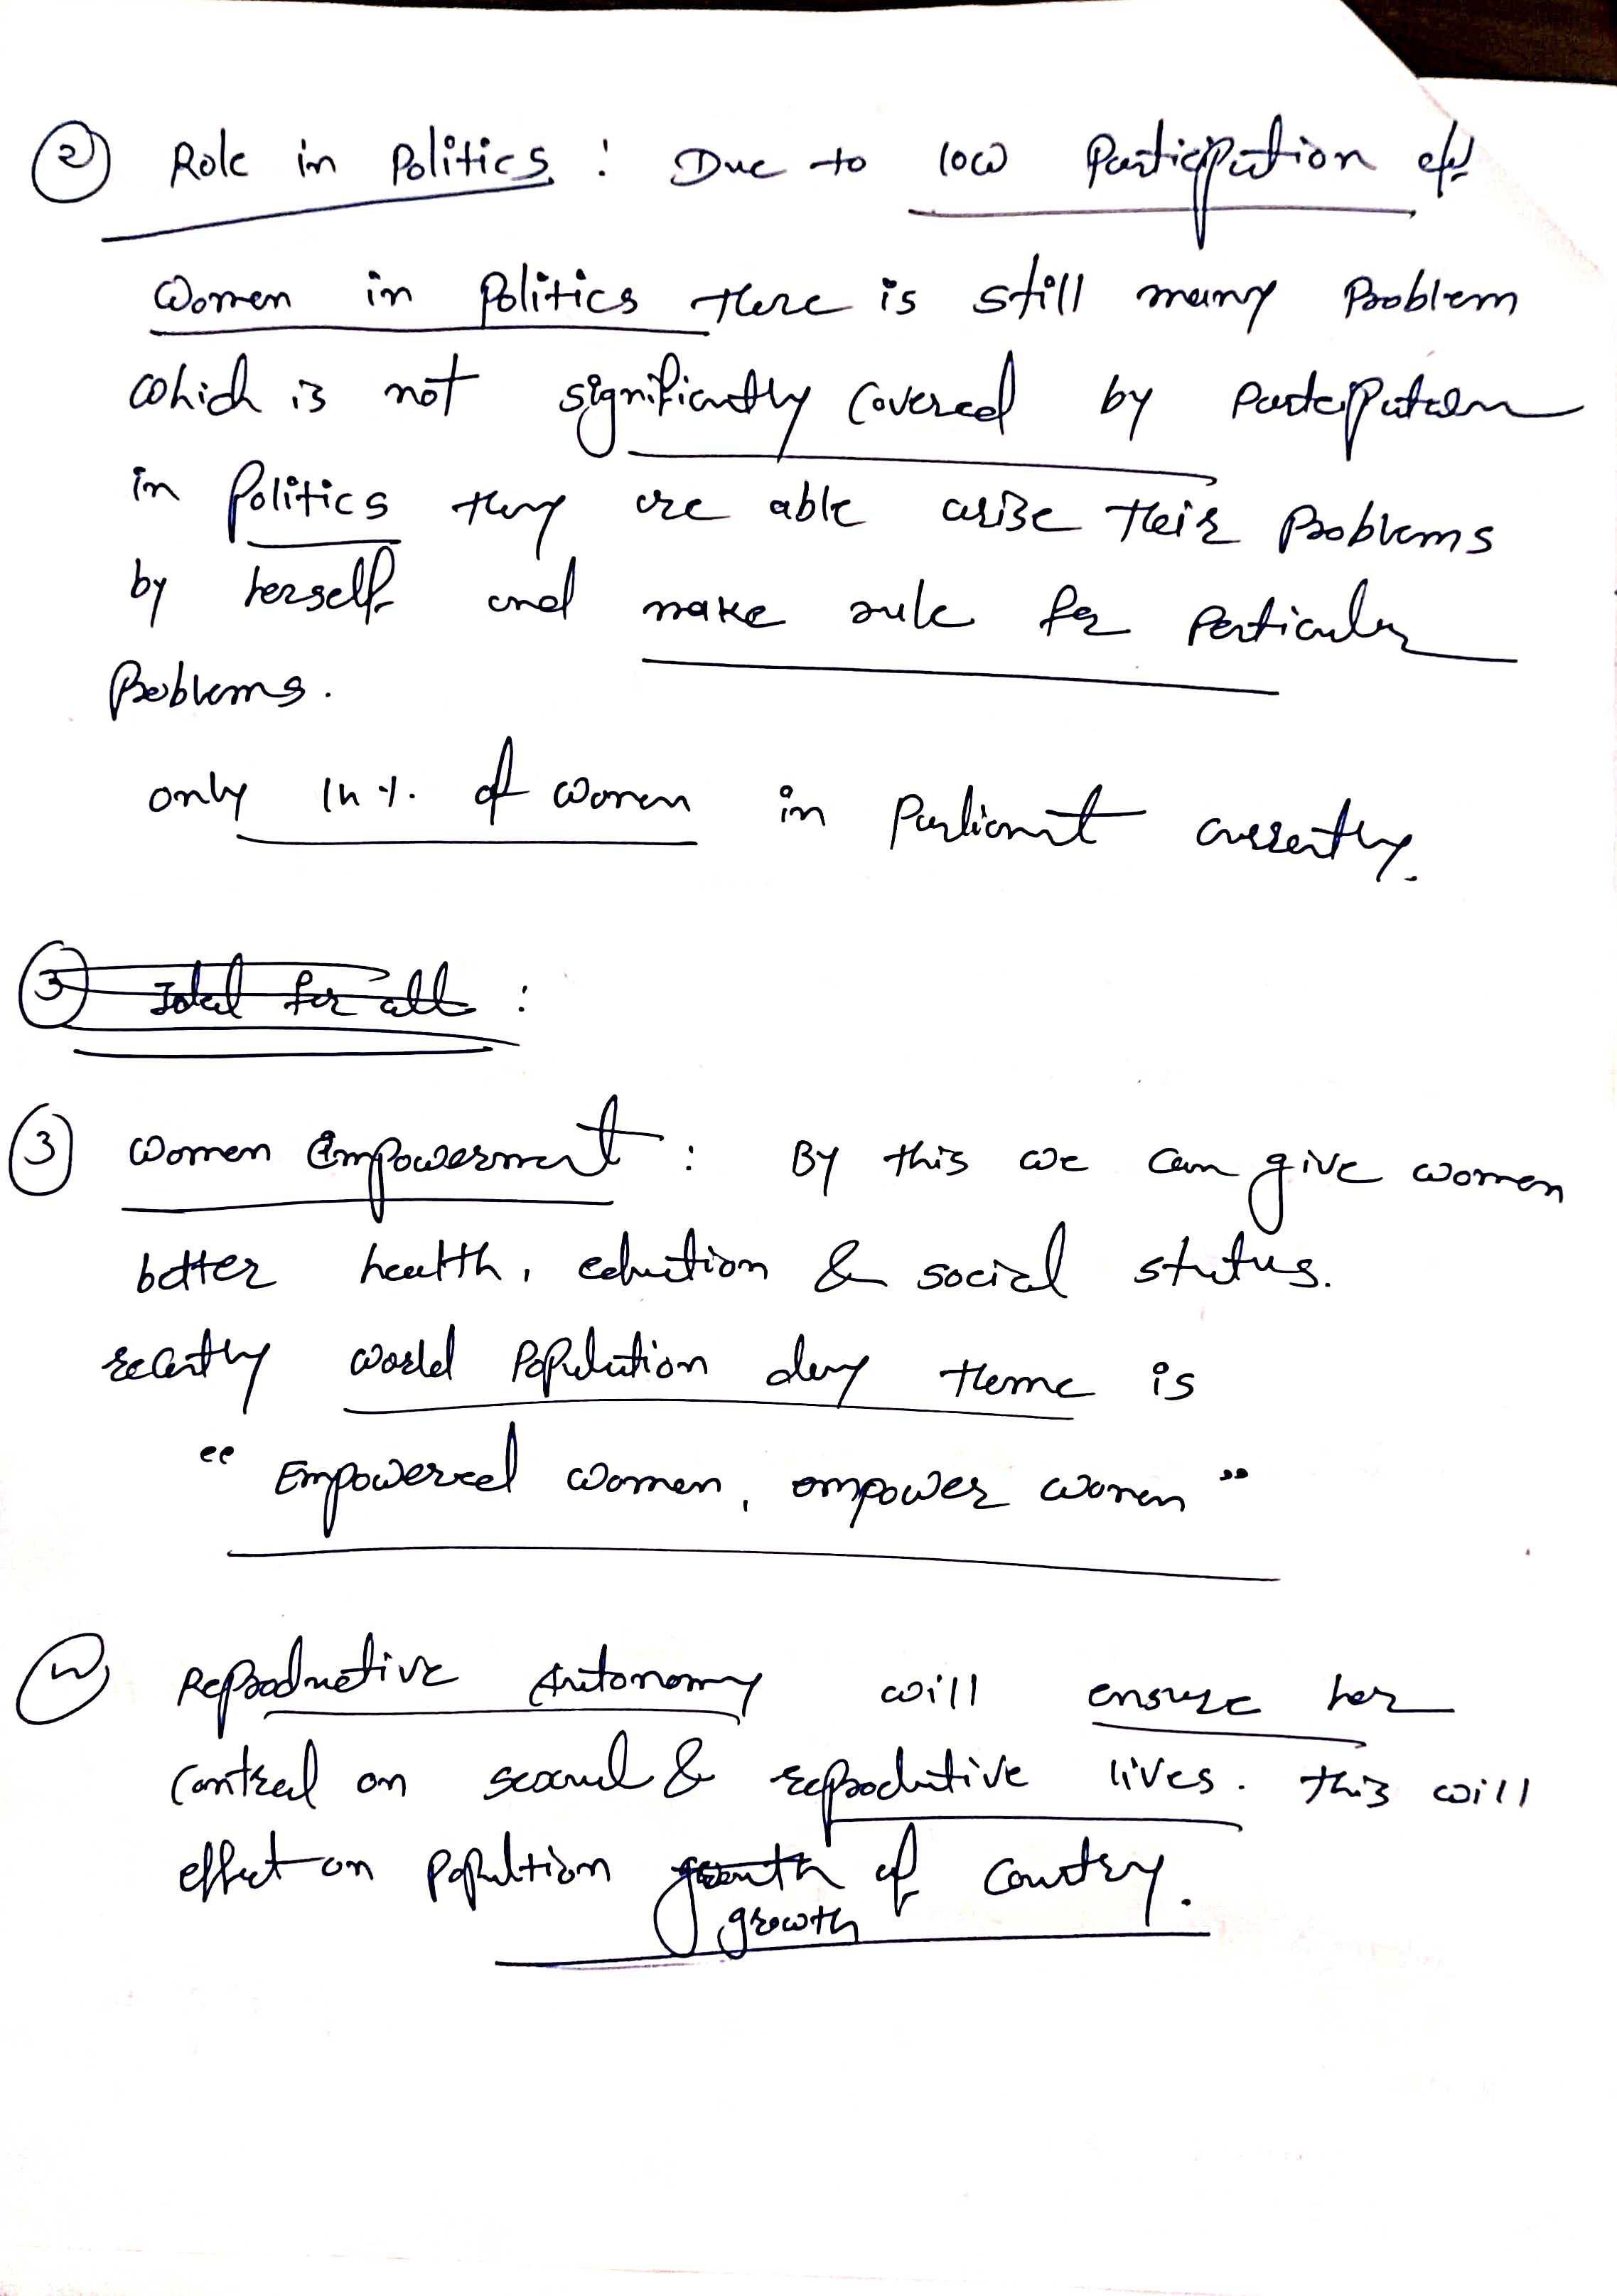 ② Role in Politics : Due to low Participation of
Women in Politics there is still many Problem
which is not significantly covered by Participation
in Politics they are able arise their Problems
by herself and make rule for Particular
Problems.
only 14 %. of women in Parliament currently.
③ for all :
③ Women Empowerment : By this we can give women
better health, eduction & social status.
recently world Population day theme is
“ Empowered women, empower women ”
④ Reproductive Autonomy will ensure her
Control on sexual & reproductive lives. This will
effect on Popultion growth of Country.
growth